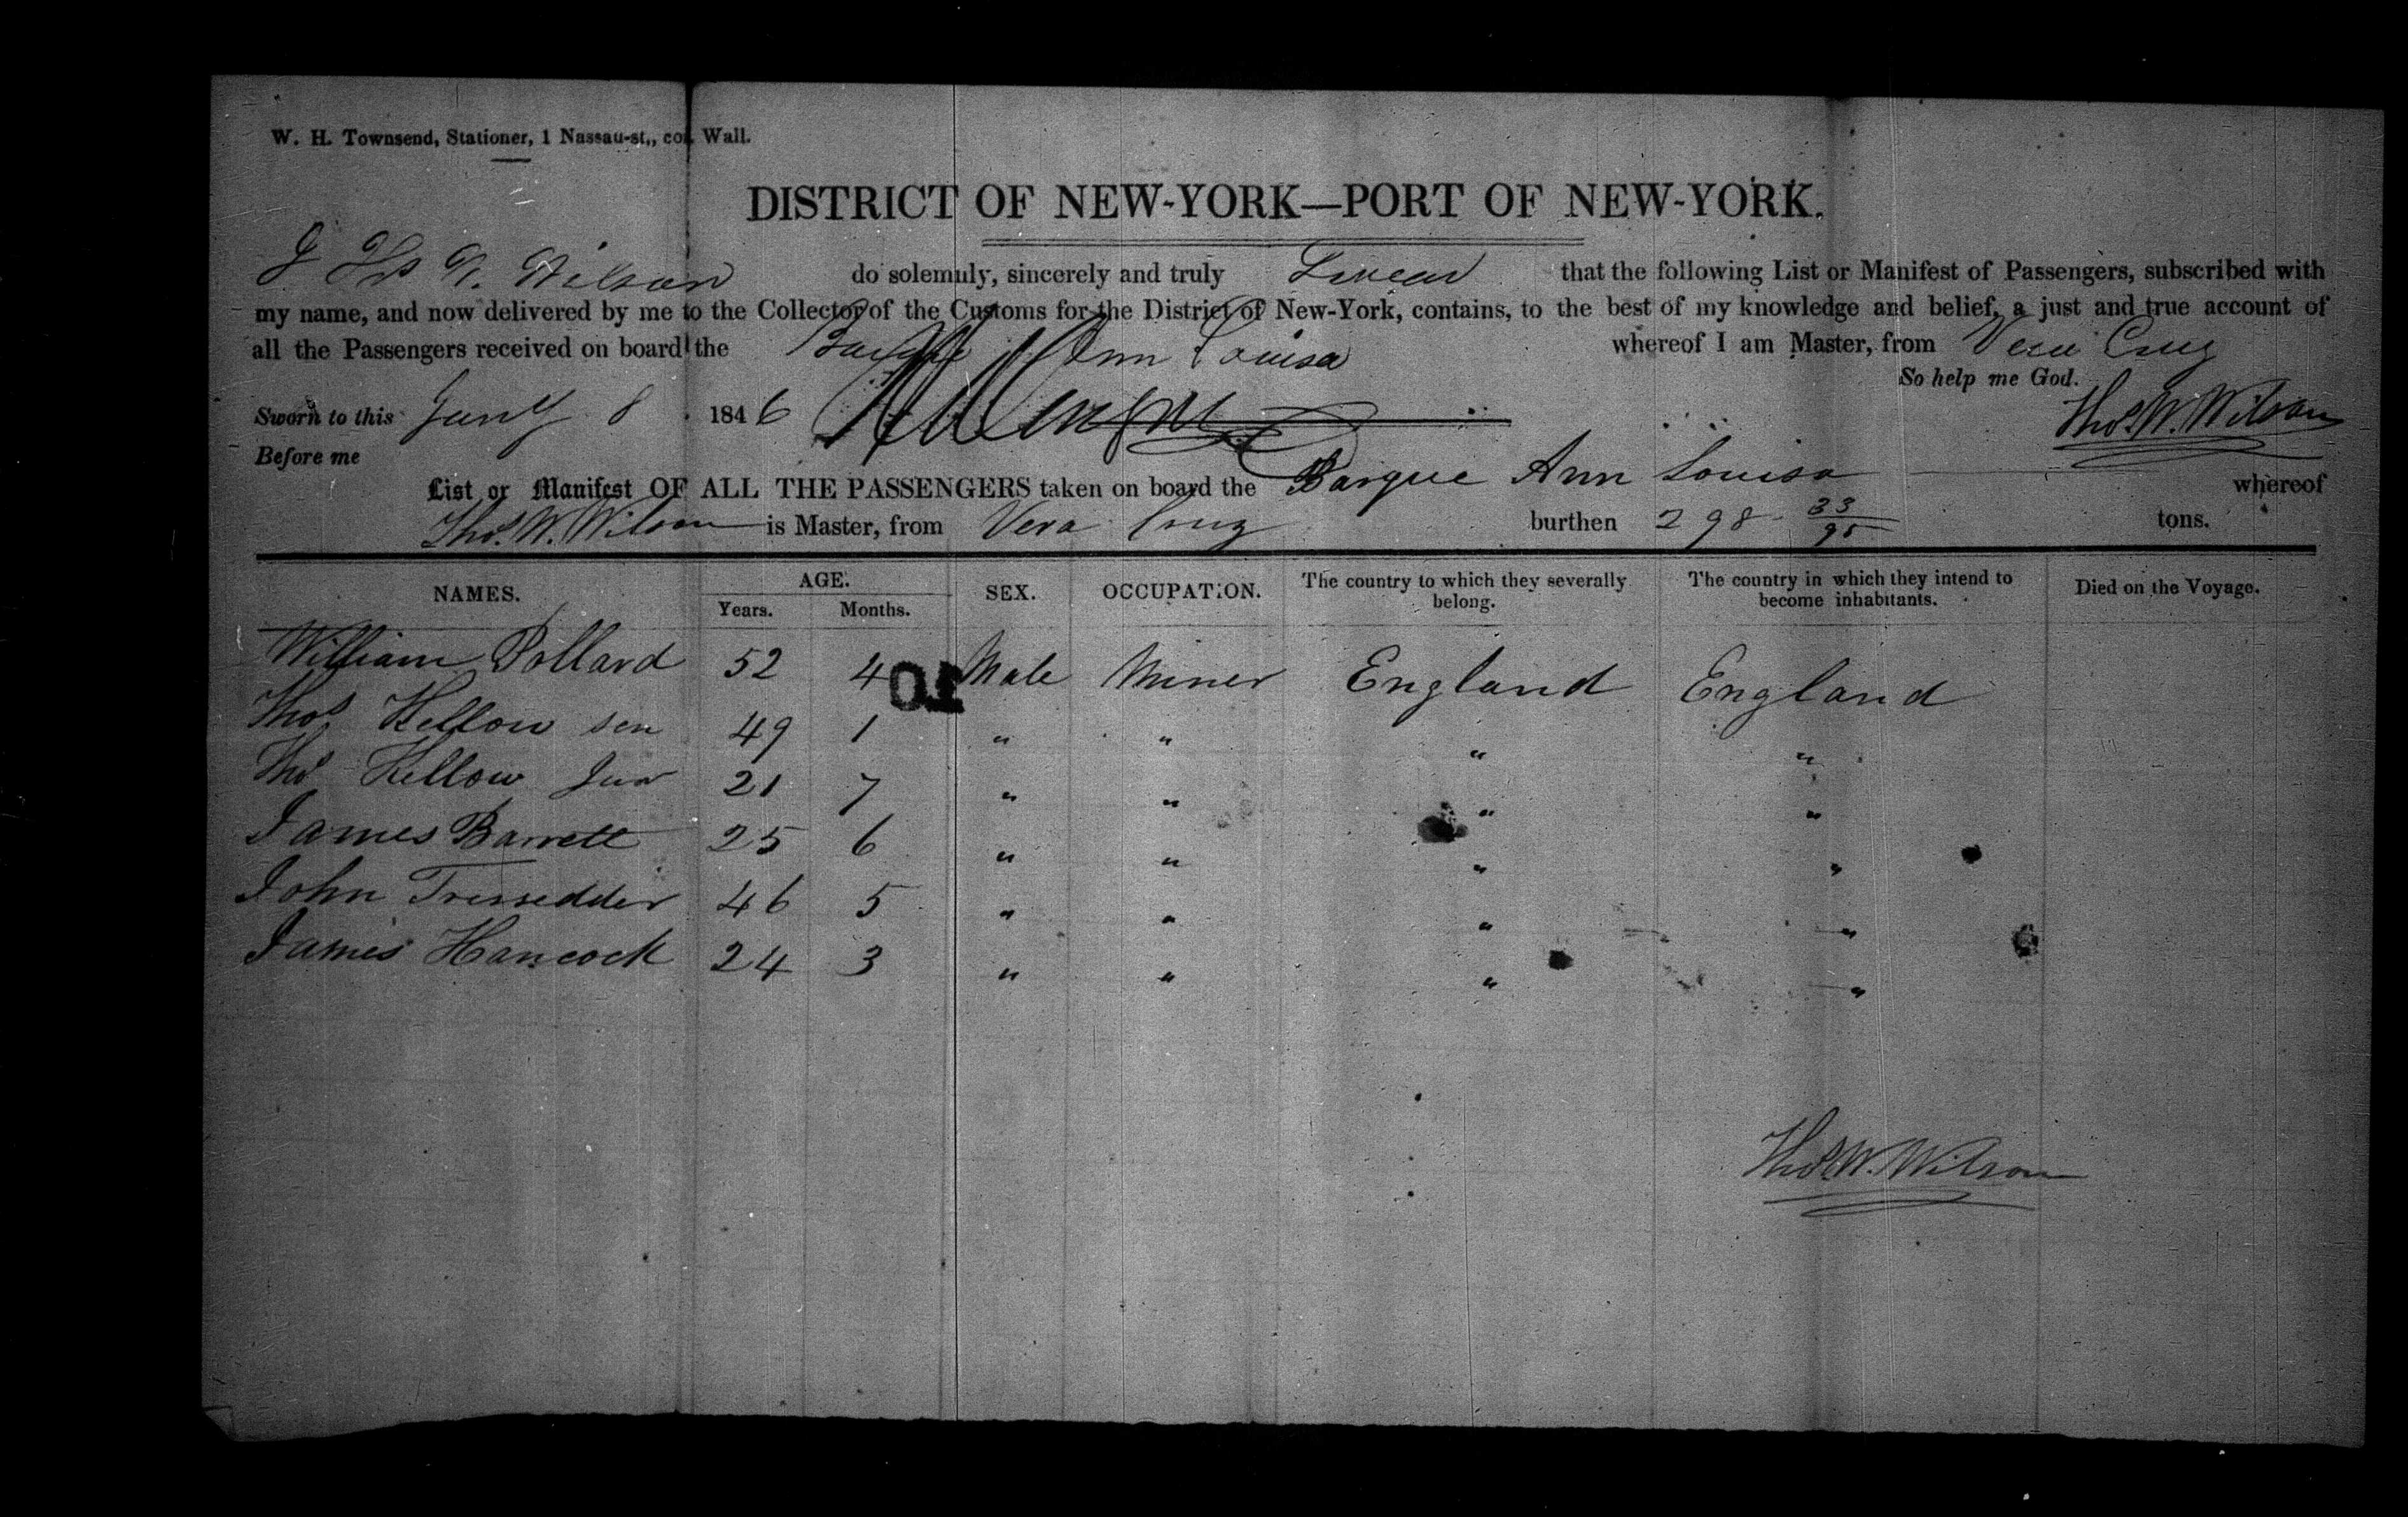 W. H. Townsend, Stationer, 1 Nassau-st., cor. Wall.
DISTRICT OF NEW-YORK—PORT OF NEW-YORK.
I Thos W. Wilson do solemnly, sincerely and truly Swear that the following List or Manifest of Passengers, subscribed with
my name, and now delivered by me to the Collector of the Customs for the District of New-York, contains, to the best of my knowledge and belief, a just and true account of
all the Passengers received on board the Barque Ann Louisa whereof I am Master, from Vera Cruz
So help me God.
Sworn to this Jany 8 1846 Thos. W. Wilson
Before me
List or Manifest OF ALL THE PASSENGERS taken on board the Barque Ann Louisa whereof
Thos. W. Wilson is Master, from Vera Cruz burthen 298 33/95 tons.
NAMES. AGE. Years. Months. SEX. OCCUPATION. The country to which they severally belong. The country in which they intend to become inhabitants. Died on the Voyage.
William Pollard 52 4 Male Miner England England
Thos Kellow sen 49 1 " " " "
Thos Kellow Junr 21 7 " " " "
James Barrett 25 6 " " " "
John Tressedder 46 5 " " " "
James Hancock 24 3 " " " "
Thos. W. Wilson